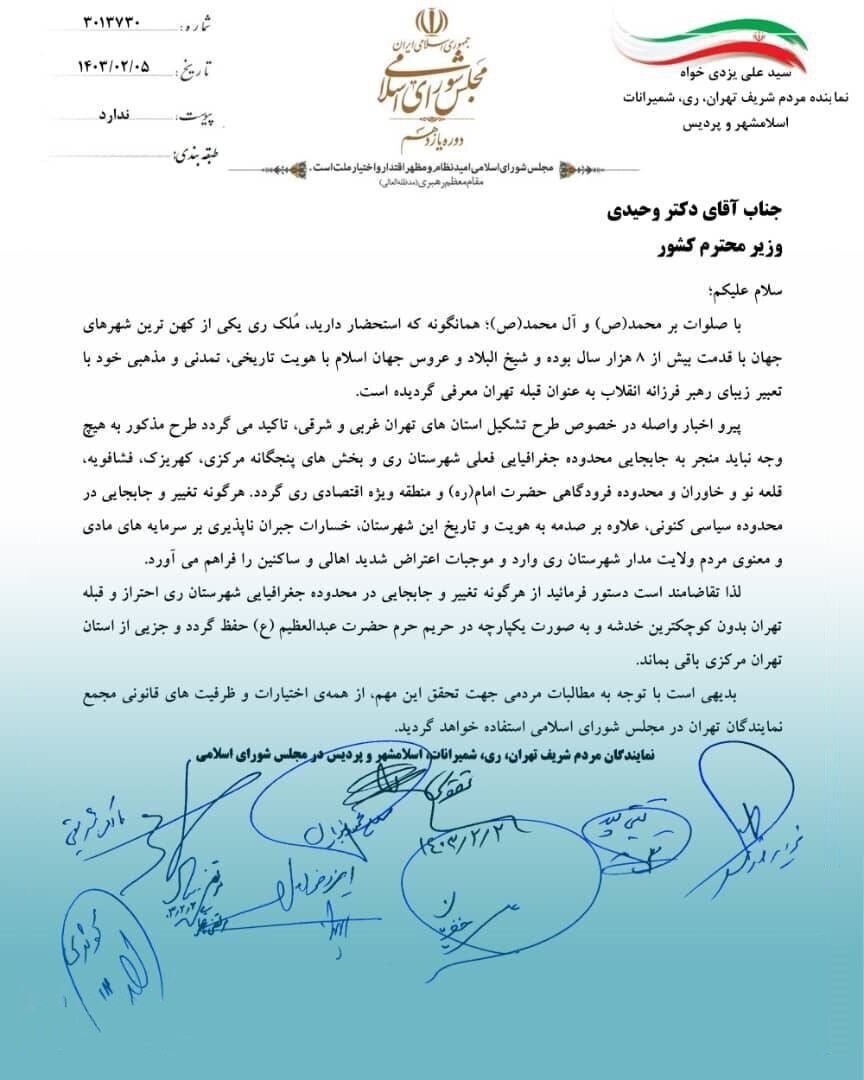 سید علی یزدی خواه
نماینده مردم شریف تهران، ری، شمیرانات
اسلامشهر و پردیس
جمهوری اسلامی ایران
مجلس شورای اسلامی
دوره یازدهم
مجلس شورای اسلامی امید نظام و مظهر اقتدار و اختیار ملت است.
مقام معظم رهبری (مدظله‌العالی)
شماره: ۳۰۱۳۷۳۰
تاریخ: ۱۴۰۳/۰۲/۰۵
پیوست: ندارد
طبقه بندی:
جناب آقای دکتر وحیدی
وزیر محترم کشور
سلام علیکم؛
با صلوات بر محمد(ص) و آل محمد(ص)؛ همانگونه که استحضار دارید، مُلک ری یکی از کهن ترین شهرهای
جهان با قدمت بیش از ۸ هزار سال بوده و شیخ البلاد و عروس جهان اسلام با هویت تاریخی، تمدنی و مذهبی خود با
تعبیر زیبای رهبر فرزانه انقلاب به عنوان قبله تهران معرفی گردیده است.
پیرو اخبار واصله در خصوص طرح تشکیل استان های تهران غربی و شرقی، تاکید می گردد طرح مذکور به هیچ
وجه نباید منجر به جابجایی محدوده جغرافیایی فعلی شهرستان ری و بخش های پنجگانه مرکزی، کهریزک، فشافویه،
قلعه نو و خاوران و محدوده فرودگاهی حضرت امام(ره) و منطقه ویژه اقتصادی ری گردد. هرگونه تغییر و جابجایی در
محدوده سیاسی کنونی، علاوه بر صدمه به هویت و تاریخ این شهرستان، خسارات جبران ناپذیری بر سرمایه های مادی
و معنوی مردم ولایت مدار شهرستان ری وارد و موجبات اعتراض شدید اهالی و ساکنین را فراهم می آورد.
لذا تقاضامند است دستور فرمائید از هرگونه تغییر و جابجایی در محدوده جغرافیایی شهرستان ری احتراز و قبله
تهران بدون کوچکترین خدشه و به صورت یکپارچه در حریم حرم حضرت عبدالعظیم (ع) حفظ گردد و جزیی از استان
تهران مرکزی باقی بماند.
بدیهی است با توجه به مطالبات مردمی جهت تحقق این مهم، از همه‌ی اختیارات و ظرفیت های قانونی مجمع
نمایندگان تهران در مجلس شورای اسلامی استفاده خواهد گردید.
نمایندگان مردم شریف تهران، ری، شمیرانات، اسلامشهر و پردیس در مجلس شورای اسلامی
تقوی
۱۴۰۳/۲/۲
خضریان
کوثری